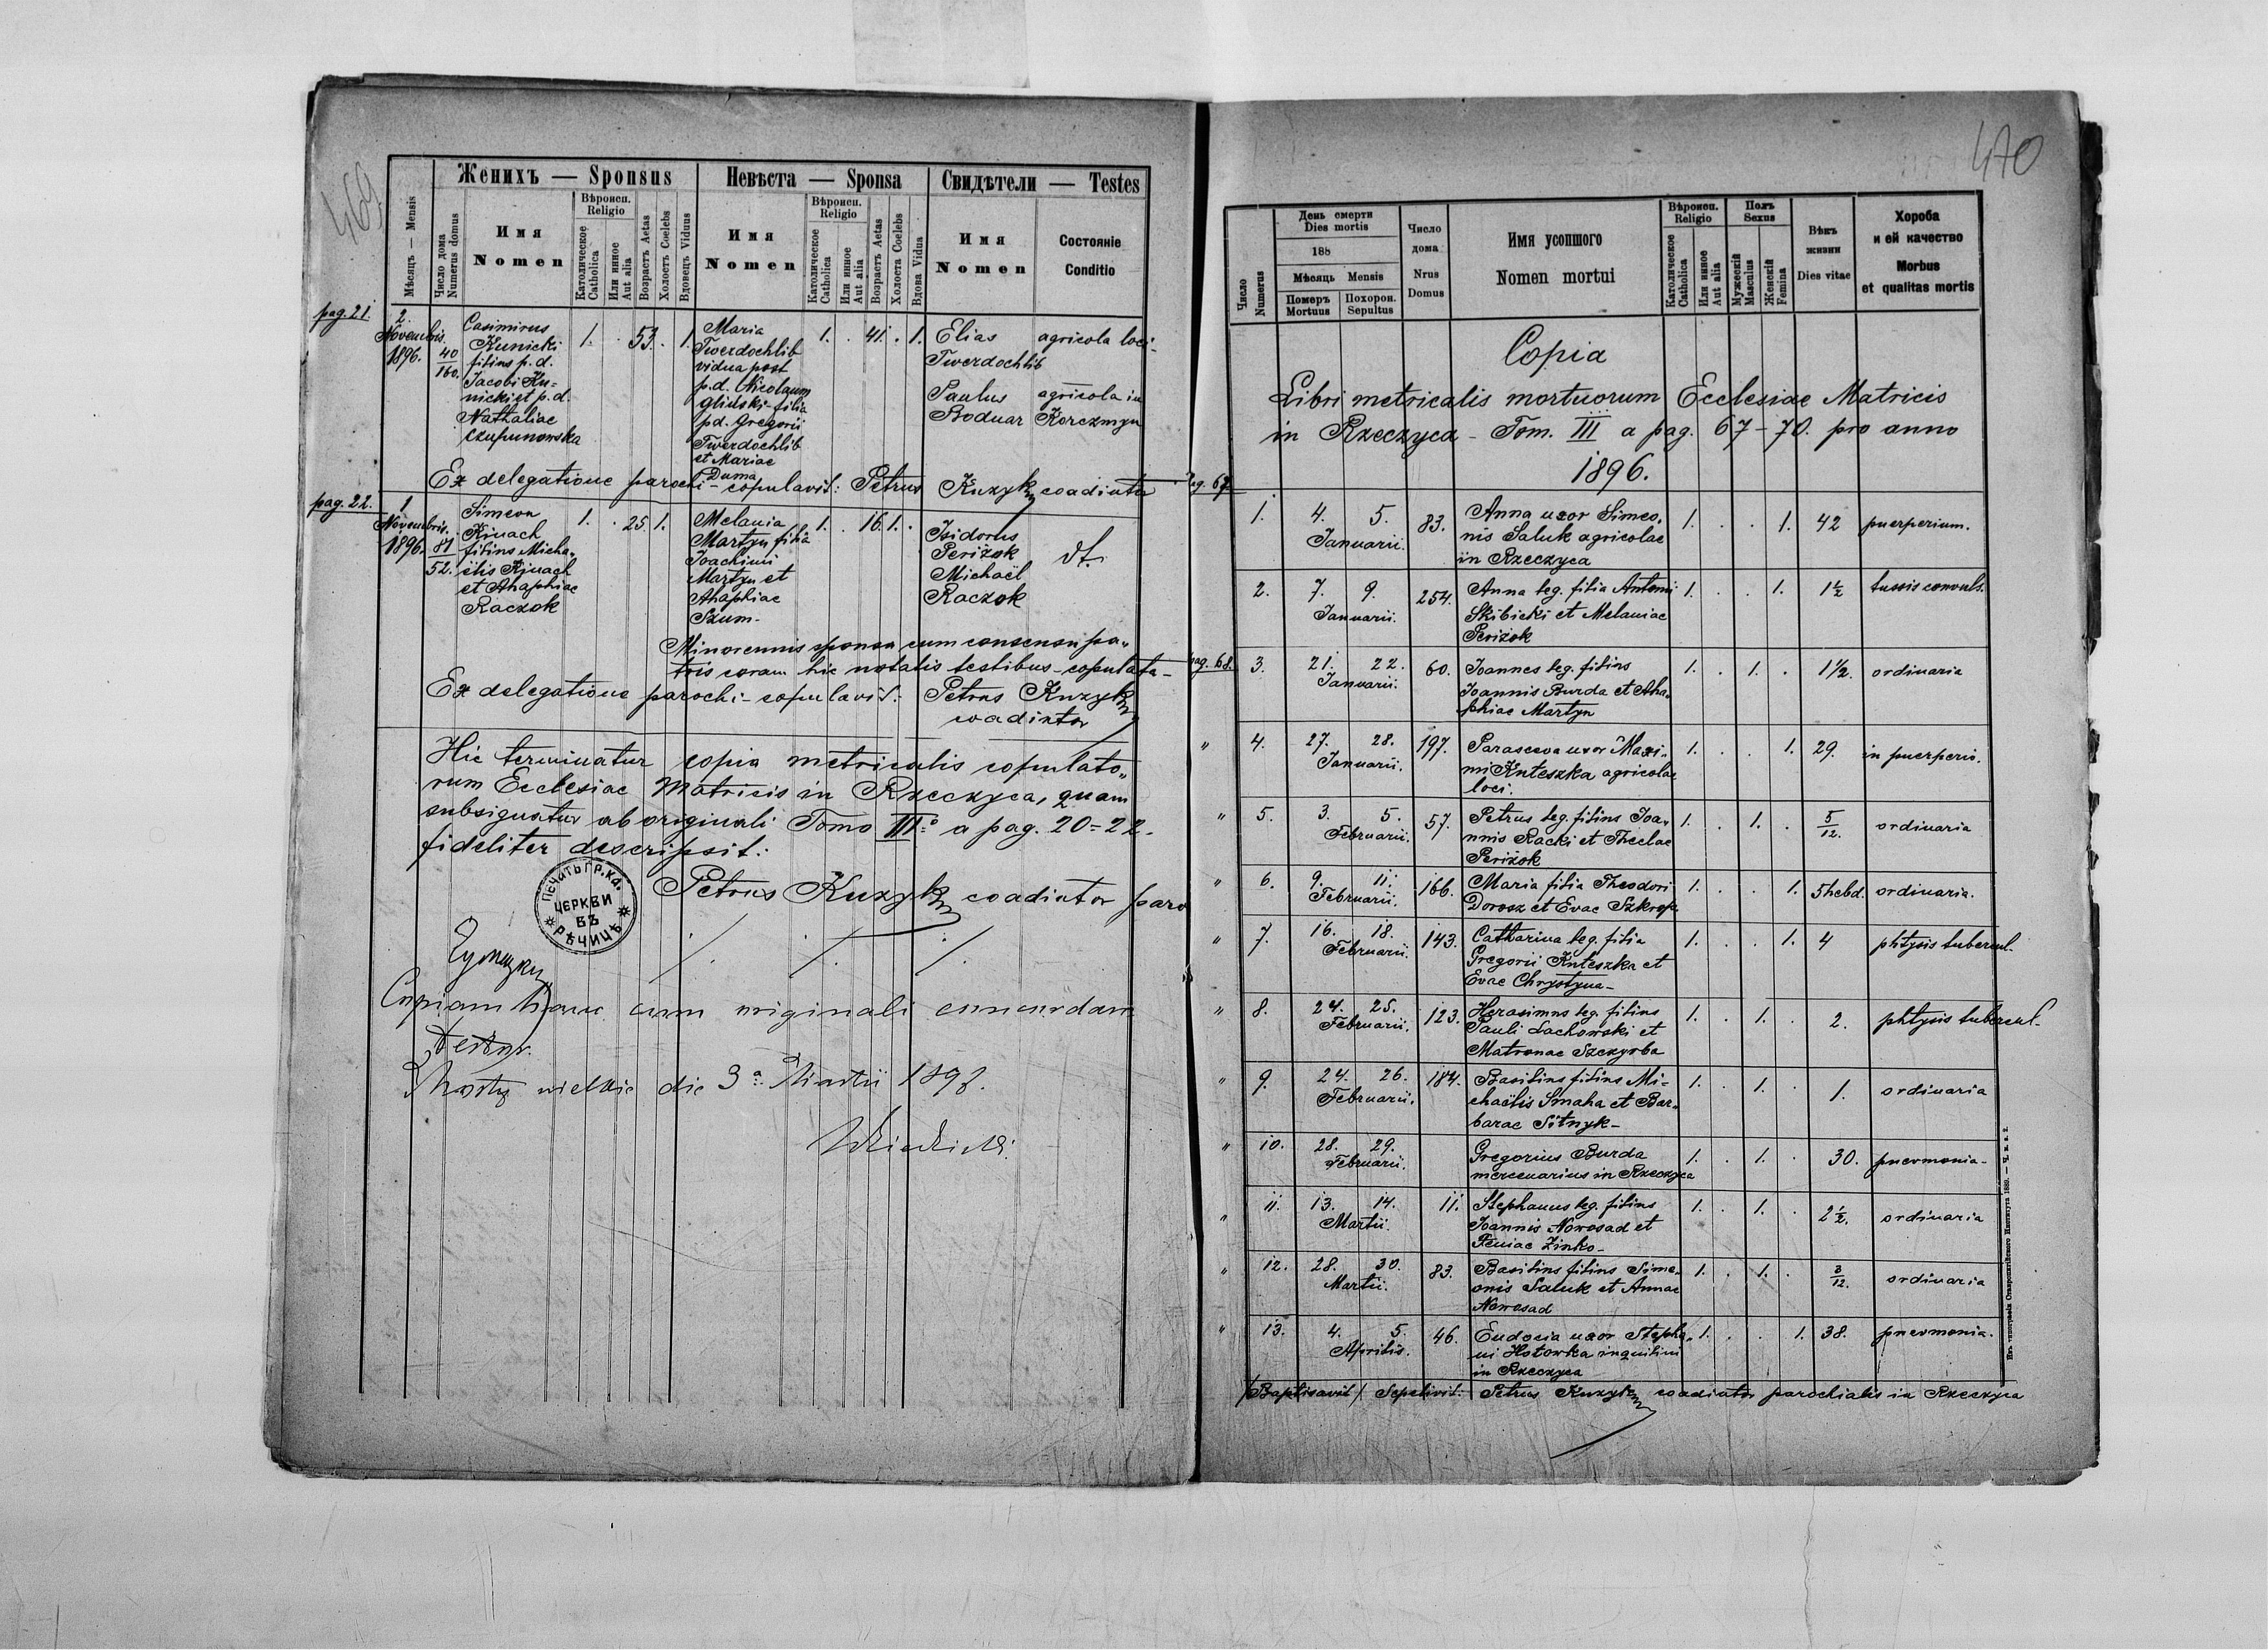 469
Женихъ — Sponsus
Невѣста — Sponsa
Свидѣтели — Testes
Мѣсяцъ — Mensis
Число дома
Numerus domus
Имя
Nomen
Вѣроисп.
Religio
Католическое
Catholica
Или инное
Aut alia
Возрастъ Aetas
Холостъ Coelebs
Вдовецъ Viduus
Имя
Nomen
Вѣроисп.
Religio
Католическое
Catholica
Или инное
Aut alia
Возрастъ Aetas
Холоста Coelebs
Вдова Vidua
Имя
Nomen
Состояніе
Conditio
pag. 21.
2.
Novembris.
1896.
40
160.
Casimirus
Kunicki
filius p. d.
Jacobi Ku=
nicki et p. d.
Nathaliae
Czupunowska
1. . 53. . 1.
Maria
Twerdochlib
vidua post
p. d. Nicolaum
Gliński - filia
pd. Gregorii
Twerdochlib
et Mariae
Duma
1. . 41. . 1.
Elias
Twerdochlib
agricola loci -
Paulus
Bodnar
agricola in
Korczmyn
Ex delegatione parochi - copulavit: Petrus Kuzyk coadiutor
pag. 22.
1
Novembris.
1896.
81
52.
Simeon
Kjnach
filius Micha„
ëlis Kjnach
et Ahaphiae
Raczok
1. . 25. 1.
Melania
Martyn filia
Joachimi
Martyn et
Ahaphiae
Szum -
1. . 16. 1. .
Isidorus
Perižok
Michaël
Raczok
dt.
Minorennis sponsa cum consensu pa„
tris coram hic notatis testibus - copulata -
Ex delegatione parochi - copulavit: Petrus Kuzyk
coadiutor
Hic terminatur copia metricalis copulato„
rum Ecclesiae Matricis in Rzeczyca, quam
subsignatus ab originali Tomo III.º a pag. 20=22.
fideliter descripsit:
Petrus Kuzyk coadiutor paro
ПЕЧАТЬ ГР. КА.
ЦЕРКВИ
ВЪ
РѢЧИЦѢ
Copiam hanc cum originali concordare
testor.
Mosty wielkie die 3ª Martii 1897.
470
Число
Numerus
День смерти
Dies mortis
188
Мѣсяць Mensis
Померъ
Mortuus
Похорон.
Sepultus
Число
дома
Nrus
Domus
Имя усопшого
Nomen mortui
Вѣроисп.
Religio
Католическое
Catholica
Или инное
Aut alia
Полъ
Sexus
Мужескій
Masculus
Женскій
Femina
Вѣкъ
жизни
Dies vitae
Хороба
и ей качество
Morbus
et qualitas mortis
Copia
Libri metricalis mortuorum Ecclesiae Matricis
in Rzeczyca - Tom. III a pag. 67-70. pro anno
1896.
Pag. 67.
1. 4. 5. 83. Anna uxor Simeo, 1. . . 1. 42 puerperium.
Januarii. nis Saluk agricolae
in Rzeczyca
2. 7. 9. 254. Anna leg. filia Antonii 1. . . 1. 1½ tussis convuls.
Januarii. Skibicki et Melaniae
Perižok
pag. 68.
3. 21. 22. 60. Joannes leg. filius 1. . 1. . 1½. ordinaria
Januarii. Joannis Burda et Aha„
phiae Martyn
„ 4. 27. 28. 197. Parasceva uxor Maxi- 1. . . 1. 29. in puerperio.
Januarii. mi Kuteszka agricolae
loci.
„ 5. 3. 5. 57. Petrus leg. filius Joa„ 1. . 1. . 5/12. ordinaria
Februarii. nnis Racki et Theclae
Perižok
„ 6. 9. 11. 166. Maria filia Theodori 1. . . 1. 5 hebd. ordinaria.
Februarii. Dorosz et Evae
„ 7. 16. 18. 143. Catharina leg. filia 1. . . 1. 4 phtysis tubercul.
Februarii. Gregorii Kuteszka et
Evae Chrystyna -
„ 8. 24. 25. 123. Herasimus leg. filius 1. . 1. . 2. phtysis tubercul.
Februarii. Pauli Lachowski et
Matronae Szczyrba
„ 9. 24. 26. 184. Basilius filius Mi- 1. . 1. . 1. ordinaria
Februarii. chaëlis Smaha et Bar„
barae Sitnyk -
„ 10. 28. 29. Gregorius Burda 1. . 1. . 30. pneomonia -
Februarii. mercenarius in Rzeczyca
„ 11. 13. 14. 11. Stephanus leg. filius 1. . 1. . 2½. ordinaria
Martii. Joannis Nowosad et
Feniae Zinko -
„ 12. 28. 30. 83. Basilius filius Sime„ 1. . 1. . 3/12. ordinaria
Martii. onis Saluk et Annae
Nowosad
„ 13. 4. 5. 46. Eudocia uxor Stepha„ 1. . . 1. 38. pneomonia.
Aprilis. ni Hotowka inquilini
in Rzeczyca
/Baptisavit/ Sepelivit: Petrus Kuzyk coadiutor parochialis in Rzeczyca
Изъ типографіи Ставропигійского Института 1889. — Ч. к. в. 2.